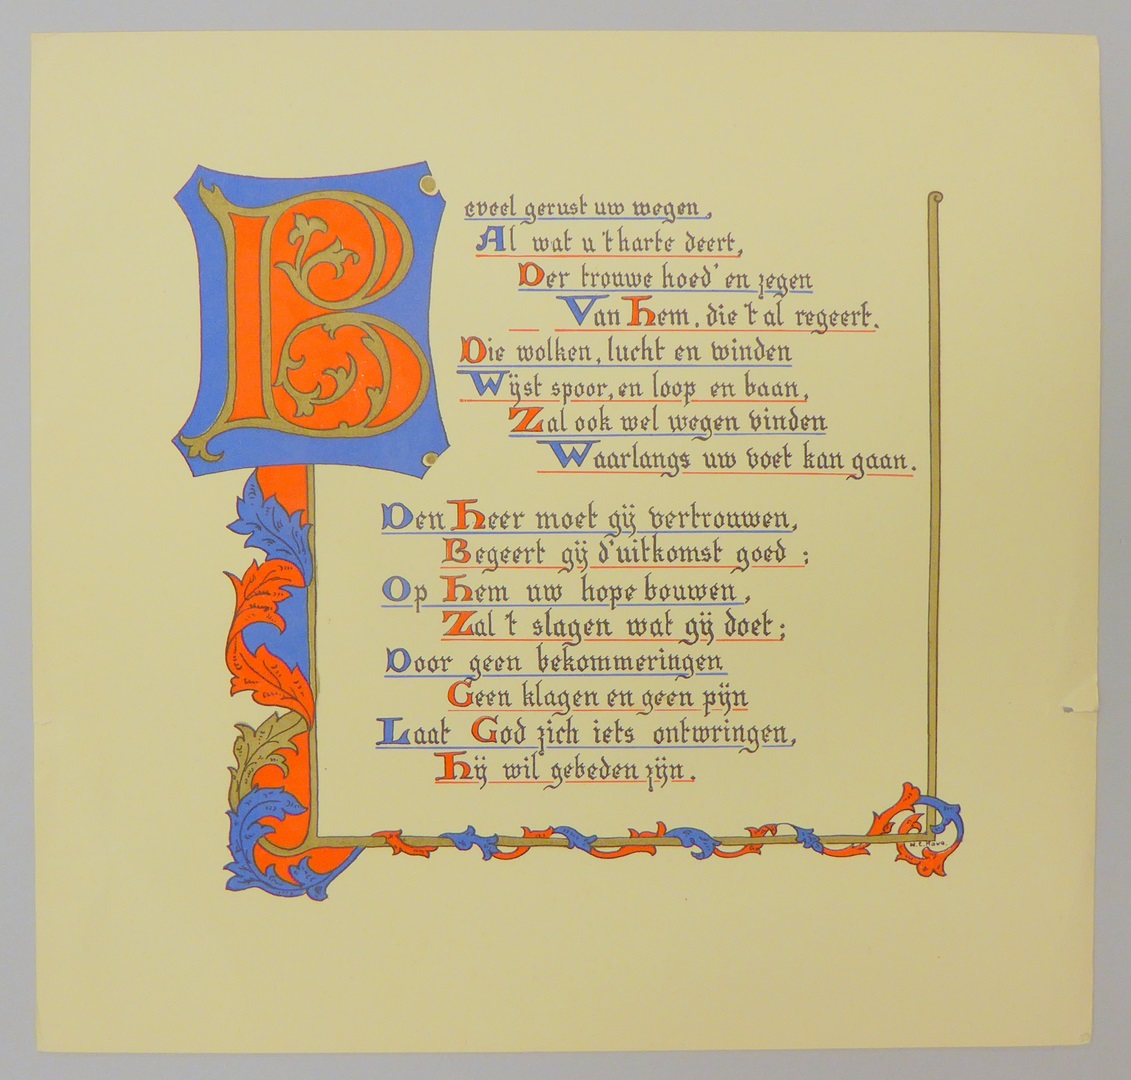 Beveel gerust uw wegen,
Al wat u 't harte deert,
Der trouwe hoed' en zegen
Van Hem, die 't al regeert.
Die wolken, lucht en winden
Wijst spoor, en loop en baan,
Zal ook wel wegen vinden
Waarlangs uw voet kan gaan.
Den Heer moet gij vertrouwen,
Begeert gij d'uitkomst goed :
Op Hem uw hope bouwen,
Zal 't slagen wat gij doet ;
Door geen bekommeringen
Geen klagen en geen pijn
Laat God zich iets ontwringen,
Hij wil gebeden zijn.